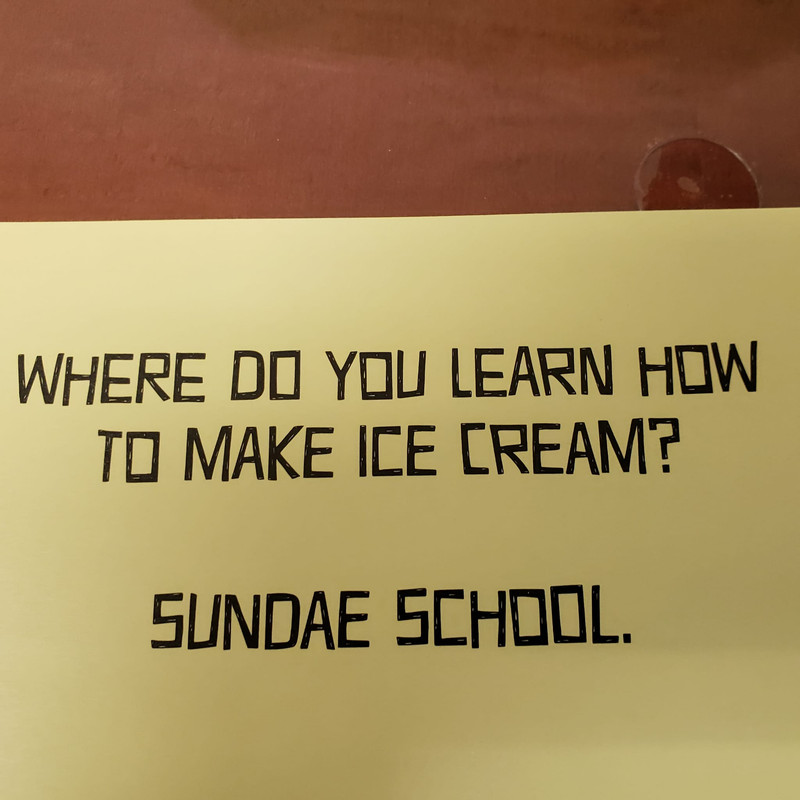 WHERE DO YOU LEARN HOW
TO MAKE ICE CREAM?
SUNDAE SCHOOL.